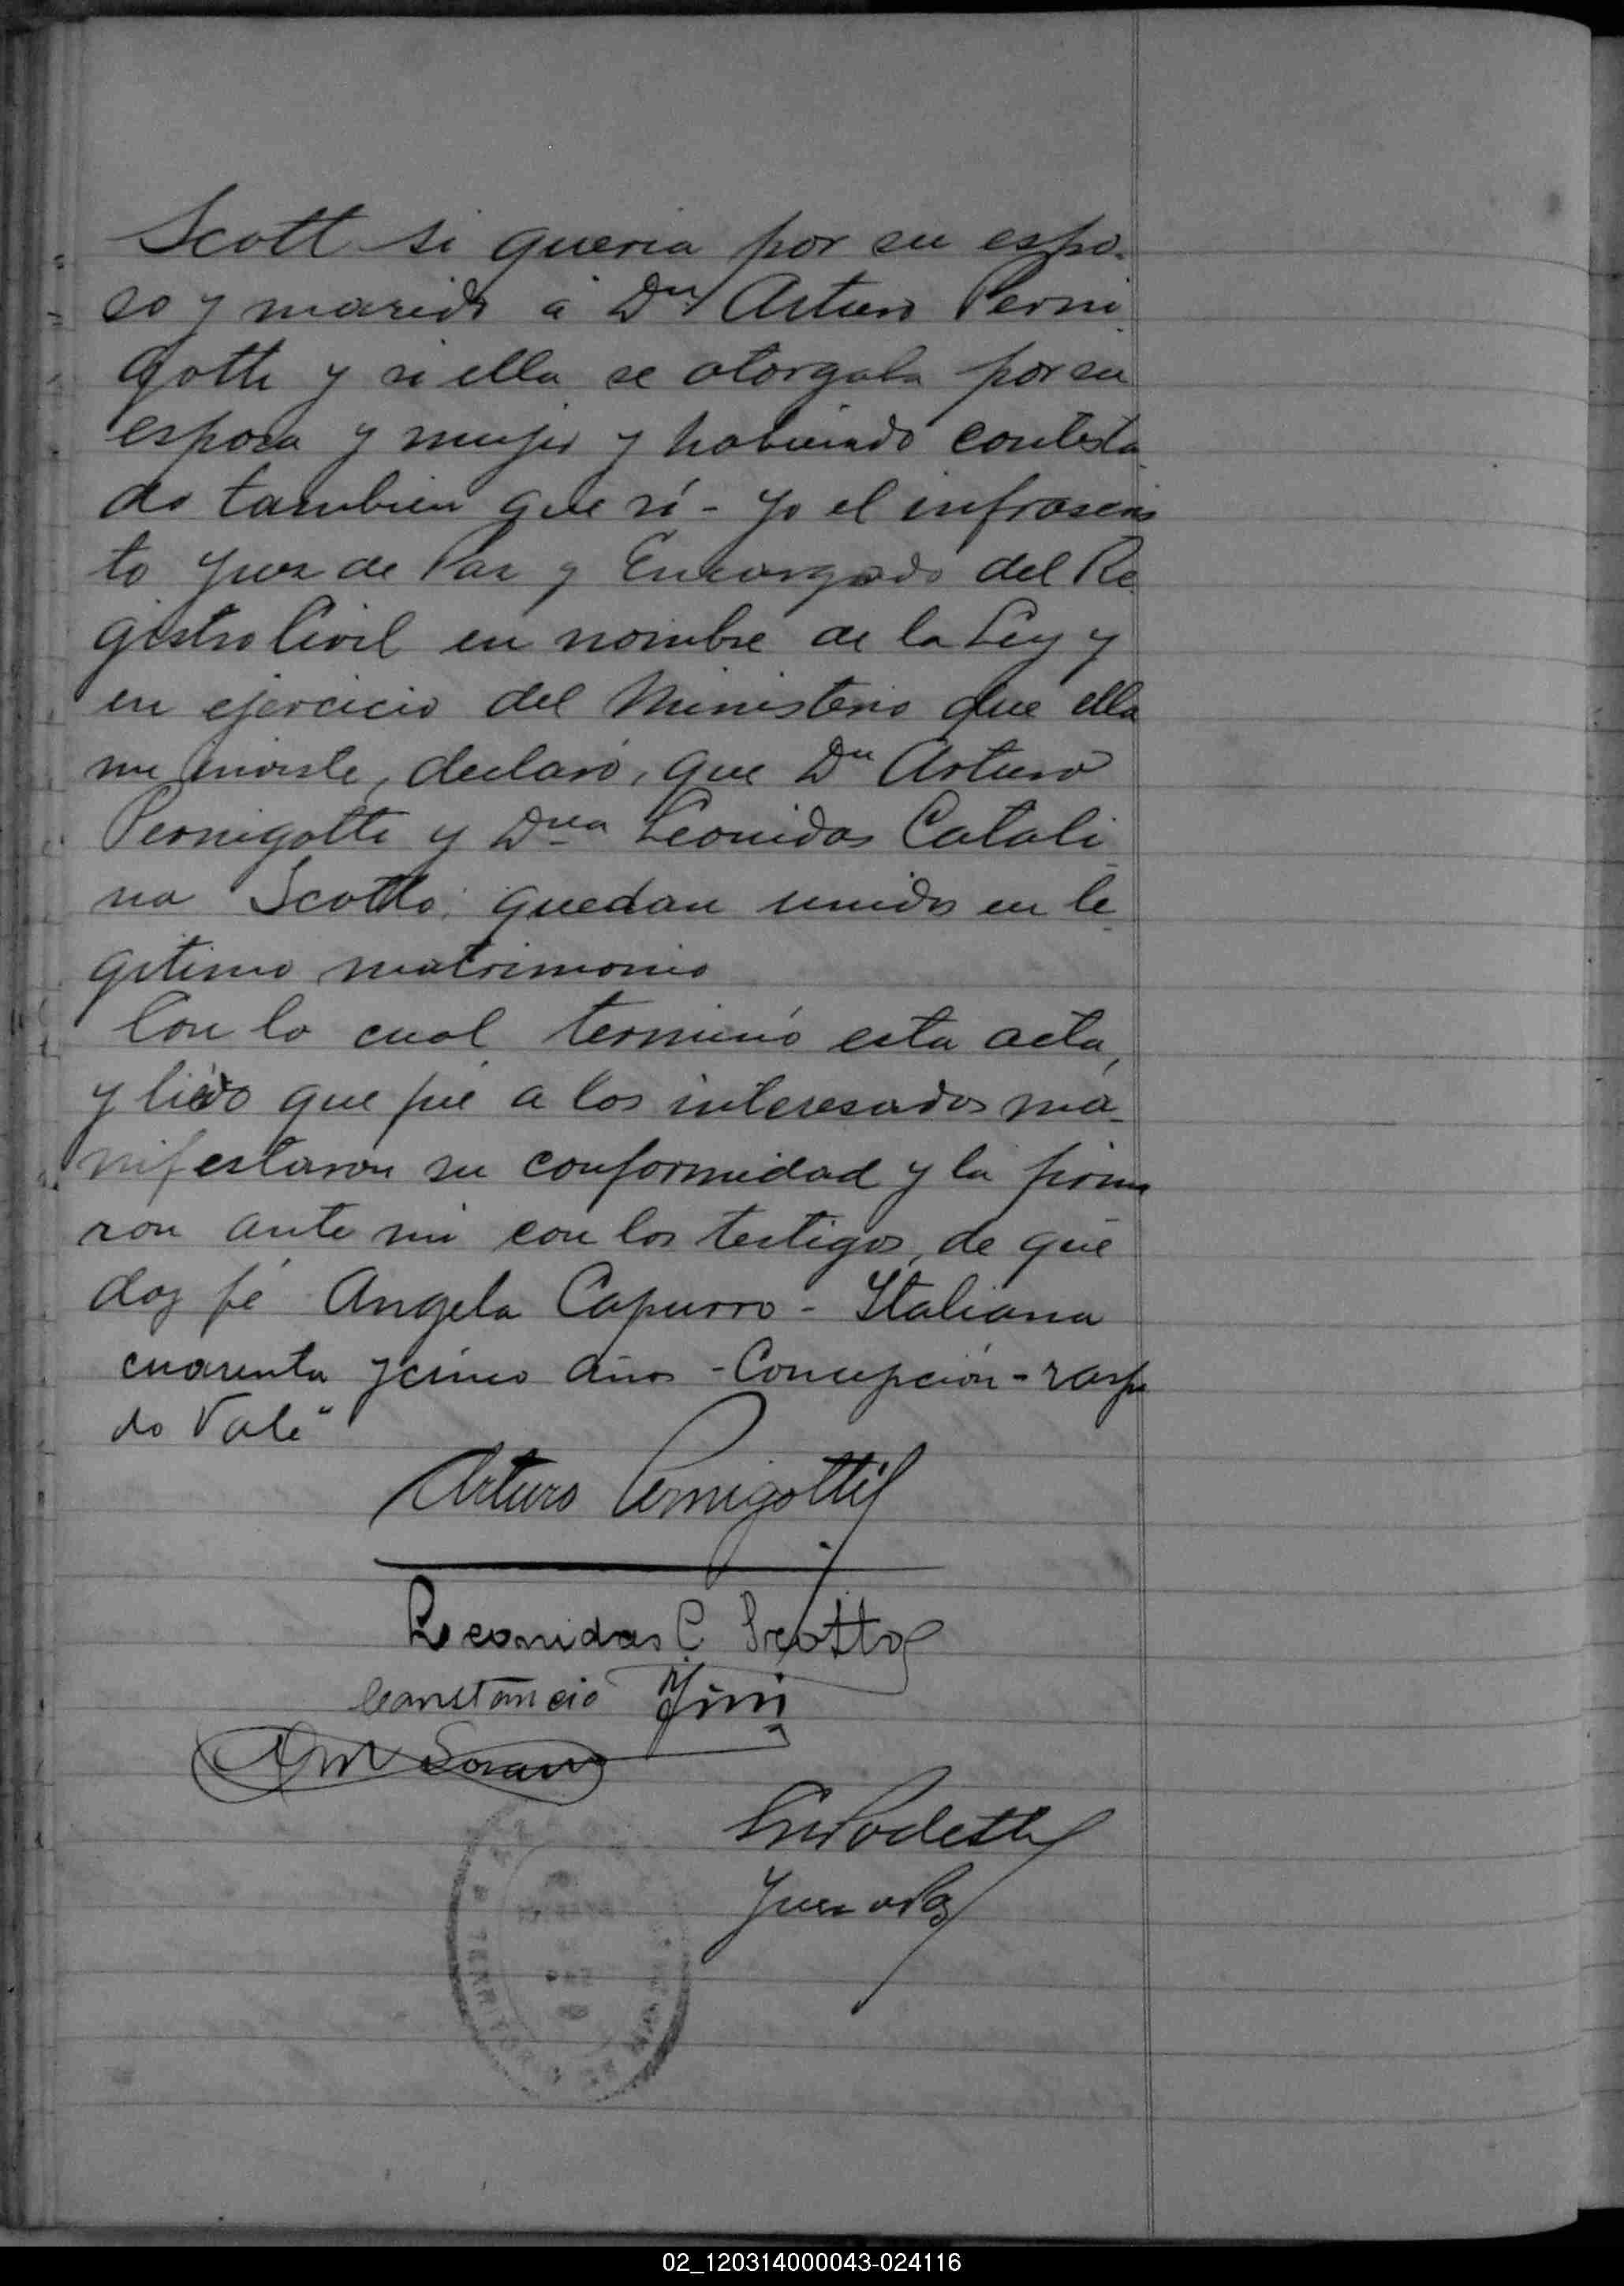 Scott si queria por su espo-
so y marido á Dn Arturo Perni
gotti y si ella se otorgaba por su
esposa y mujer y habiendo contesta
do tambien que sí - yo el infrascrip
to Juez de Paz y Encargado del Re
gistro Civil en nombre de la Ley y
en ejercicio del Ministerio que ella
me inviste, declaro, que Dn Arturo
Pernigotti y Dña Leonidas Catali
na Scotto; quedan unidos en le
gitimo matrimonio
Con lo cual terminó esta acta,
y leido que fué a los interesados ma-
nifestaron su conformidad y la firma
ron ante mi con los testigos, de que
doy fé Angela Capurro - Italiana
cuarenta y cinco años - Concepción - raspa
do Vale"
Arturo Pernigotti
Leonidas C. Scotto
Constancio
Juez de Paz
TERRITORIO
02_120314000043-024116